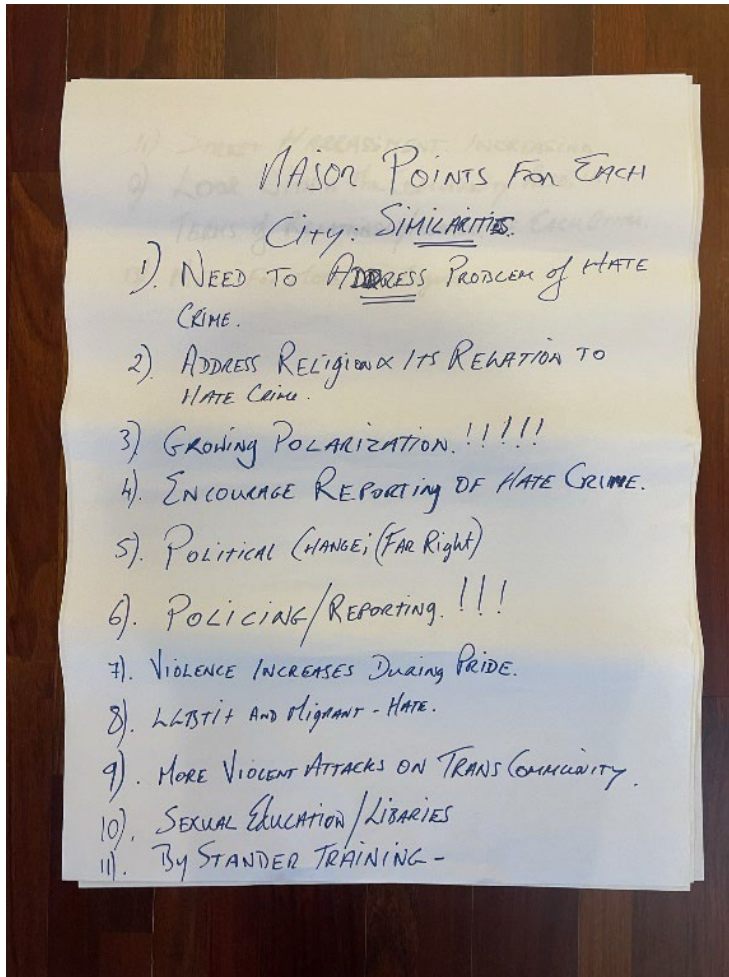 MAJOR POINTS FOR EACH
CITY: SIMILARITIES.
1). NEED TO ADDRESS PROBLEM of HATE
CRIME.
2). ADDRESS RELIGION & ITS RELATION TO
HATE CRIME.
3) GROWING POLARIZATION.!!!!!
4). ENCOURAGE REPORTING OF HATE CRIME.
5). POLITICAL CHANGE; (FAR Right)
6). POLICING/REPORTING.!!!
7). VIOLENCE INCREASES DURING PRIDE.
8). LGBTI+ AND MIGRANT - HATE.
9). MORE VIOLENT ATTACKS ON TRANS COMMUNITY.
10). SEXUAL EDUCATION/LIBARIES
11). BY STANDER TRAINING -